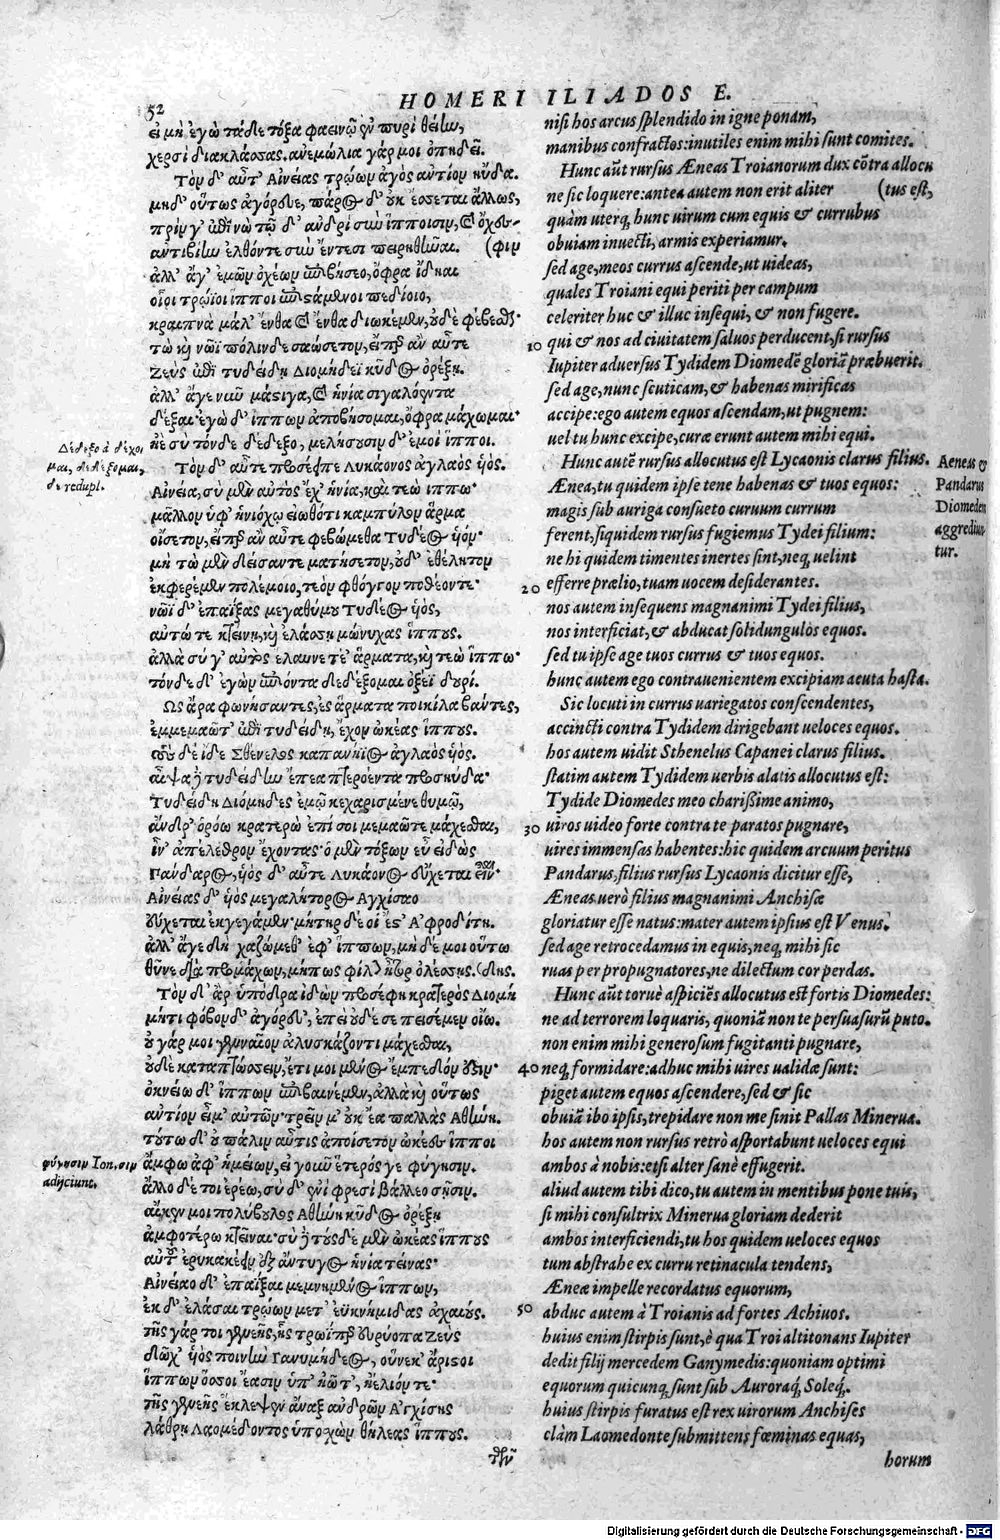 52
HOMERI ILIADOS E.
εἰ μὴ ἐγὼ τάδε τόξα φαεινῷ ἐν πυρὶ θείην,
χερσὶ διακλάσσας. ἀνεμώλια γάρ μοι ὀπηδεῖ.
Τὸν δ' αὖτ' Αἰνείας τρώων ἀγὸς ἀντίον ηὔδα.
μηδ' οὕτως ἀγόρευε, πάρος δ' οὐκ ἔσσεται ἄλλως,
πρίν γ' ἐπὶ νὼ τῷ δ' ἀνδρὶ σὺν ἵπποισιν, καὶ ὄχεσ-
ἀντιβίην ἐλθόντε σὺν ἔντεσι πειρηθῆναι. (φιν
ἀλλ' ἄγ' ἐμῶν ὀχέων ἐπιβήσεο, ὄφρα ἴδηαι
οἷοι τρώϊοι ἵπποι ἐπιστάμενοι πεδίοιο,
κραιπνὰ μάλ' ἔνθα καὶ ἔνθα διωκέμεν, οὐδὲ φέβεσθαι·
τὼ καὶ νῶϊ πόλινδε σαώσετον, εἴπερ ἂν αὖτε
Ζεὺς ἐπὶ τυδείδῃ Διομήδεϊ κῦδος ὀρέξῃ.
ἀλλ' ἄγε νῦν μάστιγα, καὶ ἡνία σιγαλόεντα
δέξαι· ἐγὼ δ' ἵππων ἀποβήσομαι, ὄφρα μάχωμαι·
ἠὲ σὺ τόνδε δέδεξο, μελήσουσιν δ' ἐμοὶ ἵπποι.
Τὸν δ' αὖτε προσέειπε Λυκάονος ἀγλαὸς υἱός.
Αἰνεία, σὺ μὲν αὐτὸς ἔχ' ἡνία, καὶ τεὼ ἵππω·
μᾶλλον ὑφ' ἡνιόχῳ εἰωθότι καμπύλον ἅρμα
οἴσετον, εἴπερ ἂν αὖτε φεβώμεθα Τυδέος υἱόν·
μὴ τὼ μὲν δείσαντε ματήσετον, οὐδ' ἐθέλητον
ἐκφερέμεν πολέμοιο, τεὸν φθόγγον ποθέοντε·
νῶϊ δ' ἐπαΐξας μεγαθύμου Τυδέος υἱός,
αὐτώ τε κτείνῃ, καὶ ἐλάσσῃ μώνυχας ἵππους.
ἀλλὰ σύ γ' αὐτὸς ἔλαυνε τέ' ἅρματα, καὶ τεὼ ἵππω·
τόνδε δ' ἐγὼν ἐπιόντα δεδέξομαι ὀξέϊ δουρί.
Ὣς ἄρα φωνήσαντες, ἐς ἅρματα ποικίλα βάντες,
ἐμμεμαῶτ' ἐπὶ τυδείδῃ, ἔχον ὠκέας ἵππους.
τοὺς δὲ ἴδε Σθένελος καπανήϊος ἀγλαὸς υἱός.
αἶψα δὲ τυδείδην ἔπεα πτερόεντα προσηύδα·
Τυδείδη Διόμηδες ἐμῷ κεχαρισμένε θυμῷ,
ἄνδρ' ὁρόω κρατερὼ ἐπί σοι μεμαῶτε μάχεσθαι,
ἶν' ἀπέλεθρον ἔχοντας· ὁ μὲν τόξων εὖ εἰδὼς
Πάνδαρος, υἱὸς δ' αὖτε Λυκάονος εὔχεται εἶναι·
Αἰνείας δ' υἱὸς μεγαλήτορος Ἀγχίσαο
εὔχεται ἐκγεγάμεν· μήτηρ δέ οἱ ἔστ' Ἀφροδίτη.
ἀλλ' ἄγε δὴ χαζώμεθ' ἐφ' ἵππων, μηδέ μοι οὕτω
θῦνε διὰ προμάχων, μήπως φίλον ἦτορ ὀλέσσῃς. (δης.
Τὸν δ' ἄρ' ὑπόδρα ἰδὼν προσέφη κρατερὸς Διομή
μήτι φόβονδ' ἀγόρευ', ἐπεὶ οὐδέ σε πεισέμεν οἴω.
οὐ γάρ μοι γενναῖον ἀλυσκάζοντι μάχεσθαι,
οὐδὲ καταπτώσσειν, ἔτι μοι μένος ἔμπεδόν ἐστιν·
ὀκνείω δ' ἵππων ἐπιβαινέμεν, ἀλλὰ καὶ οὕτως
ἀντίον εἶμ' αὐτῶν· τρεῖν μ' οὐκ ἐᾷ παλλὰς Ἀθήνη.
τούτω δ' οὐ πάλιν αὖτις ἀποίσετον ὠκέες ἵπποι
ἄμφω ἀφ' ἡμείων, εἰ γοῦν ἕτερός γε φύγῃσιν.
ἄλλο δέ τοι ἐρέω, σὺ δ' ἐνὶ φρεσὶ βάλλεο σῇσιν.
αἴκεν μοι πολύβουλος Ἀθήνη κῦδος ὀρέξῃ
ἀμφοτέρω κτεῖναι· σὺ δὲ τούσδε μὲν ὠκέας ἵππους
αὐτοῦ ἐρυκακέειν ἐξ ἄντυγος ἡνία τείνας·
Αἰνείαο δ' ἐπαΐξαι μεμνημένος ἵππων,
ἐκ δ' ἐλάσαι τρώων μετ' ἐϋκνήμιδας ἀχαιούς.
τῆς γάρ τοι γενεῆς, ἧς τρωΐπερ εὐρύοπα Ζεὺς
δῶχ' υἷος ποινὴν Γανυμήδεος, οὕνεκ' ἄριστοι
ἵππων ὅσσοι ἔασιν ὑπ' ἠῶτ', ἠέλιόν τε·
τῆς γενεῆς ἔκλεψεν ἄναξ ἀνδρῶν Ἀγχίσης
λάθρῃ Λαομέδοντος ὑποσχὼν θήλεας ἵππους.
τῶν
Δέδεξο à δέχο
μαι, δεδέξομαι,
δε redupl.
φύγησιν Ion. σιν
adijciunt.
nisi hos arcus splendido in igne ponam,
manibus confractos: inutiles enim mihi sunt comites.
Hunc aũt rursus Æneas Troianorum dux cõtra allocu
ne sic loquere: antea autem non erit aliter (tus est,
quàm uterq; hunc uirum cum equis & curribus
obuiam inuecti, armis experiamur.
sed age, meos currus ascende, ut uideas,
quales Troiani equi periti per campum
celeriter huc & illuc insequi, & non fugere.
10 qui & nos ad ciuitatem saluos perducent, si rursus
Iupiter aduersus Tydidem Diomedẽ gloriã præbuerit.
sed age, nunc scuticam, & habenas mirificas
accipe: ego autem equos ascendam, ut pugnem:
uel tu hunc excipe, curæ erunt autem mihi equi.
Hunc autẽ rursus allocutus est Lycaonis clarus filius.
Ænea, tu quidem ipse tene habenas & tuos equos:
magis sub auriga consueto curuum currum
ferent, siquidem rursus fugiemus Tydei filium:
ne hi quidem timentes inertes sint, neq; uelint
20 efferre prælio, tuam uocem desiderantes.
nos autem insequens magnanimi Tydei filius,
nos interficiat, & abducat solidungulos equos.
sed tu ipse age tuos currus & tuos equos.
hunc autem ego contrauenientem excipiam acuta hasta.
Sic locuti in currus uariegatos conscendentes,
accincti contra Tydidem dirigebant ueloces equos.
hos autem uidit Sthenelus Capanei clarus filius.
statim autem Tydidem uerbis alatis allocutus est:
Tydide Diomedes meo charissime animo,
30 uiros uideo forte contra te paratos pugnare,
uires immensas habentes: hic quidem arcuum peritus
Pandarus, filius rursus Lycaonis dicitur esse,
Æneas uerò filius magnanimi Anchisæ
gloriatur esse natus: mater autem ipsius est Venus.
sed age retrocedamus in equis, neq; mihi sic
ruas per propugnatores, ne dilectum cor perdas.
Hunc aũt toruè aspiciẽs allocutus est fortis Diomedes:
ne ad terrorem loquaris, quoniã non te persuasurũ puto.
non enim mihi generosum fugitanti pugnare,
40 neq; formidare: adhuc mihi uires ualidæ sunt:
piget autem equos ascendere, sed & sic
obuiã ibo ipsis, trepidare non me sinit Pallas Minerua.
hos autem non rursus retrò asportabunt ueloces equi
ambos à nobis: etsi alter sanè effugerit.
aliud autem tibi dico, tu autem in mentibus pone tuis,
si mihi consultrix Minerua gloriam dederit
ambos interficiendi, tu hos quidem ueloces equos
tum abstrahe ex curru retinacula tendens,
Æneæ impelle recordatus equorum,
50 abduc autem à Troianis ad fortes Achiuos.
huius enim stirpis sunt, è qua Troi altitonans Iupiter
dedit filij mercedem Ganymedis: quoniam optimi
equorum quicunq; sunt sub Auroraq́; Soleq́;.
huius stirpis furatus est rex uirorum Anchises
clàm Laomedonte submittens fœminas equas,
horum
Aeneas &
Pandarus
Diomedem
aggrediun
tur.
Digitalisierung gefördert durch die Deutsche Forschungsgemeinschaft - DFG